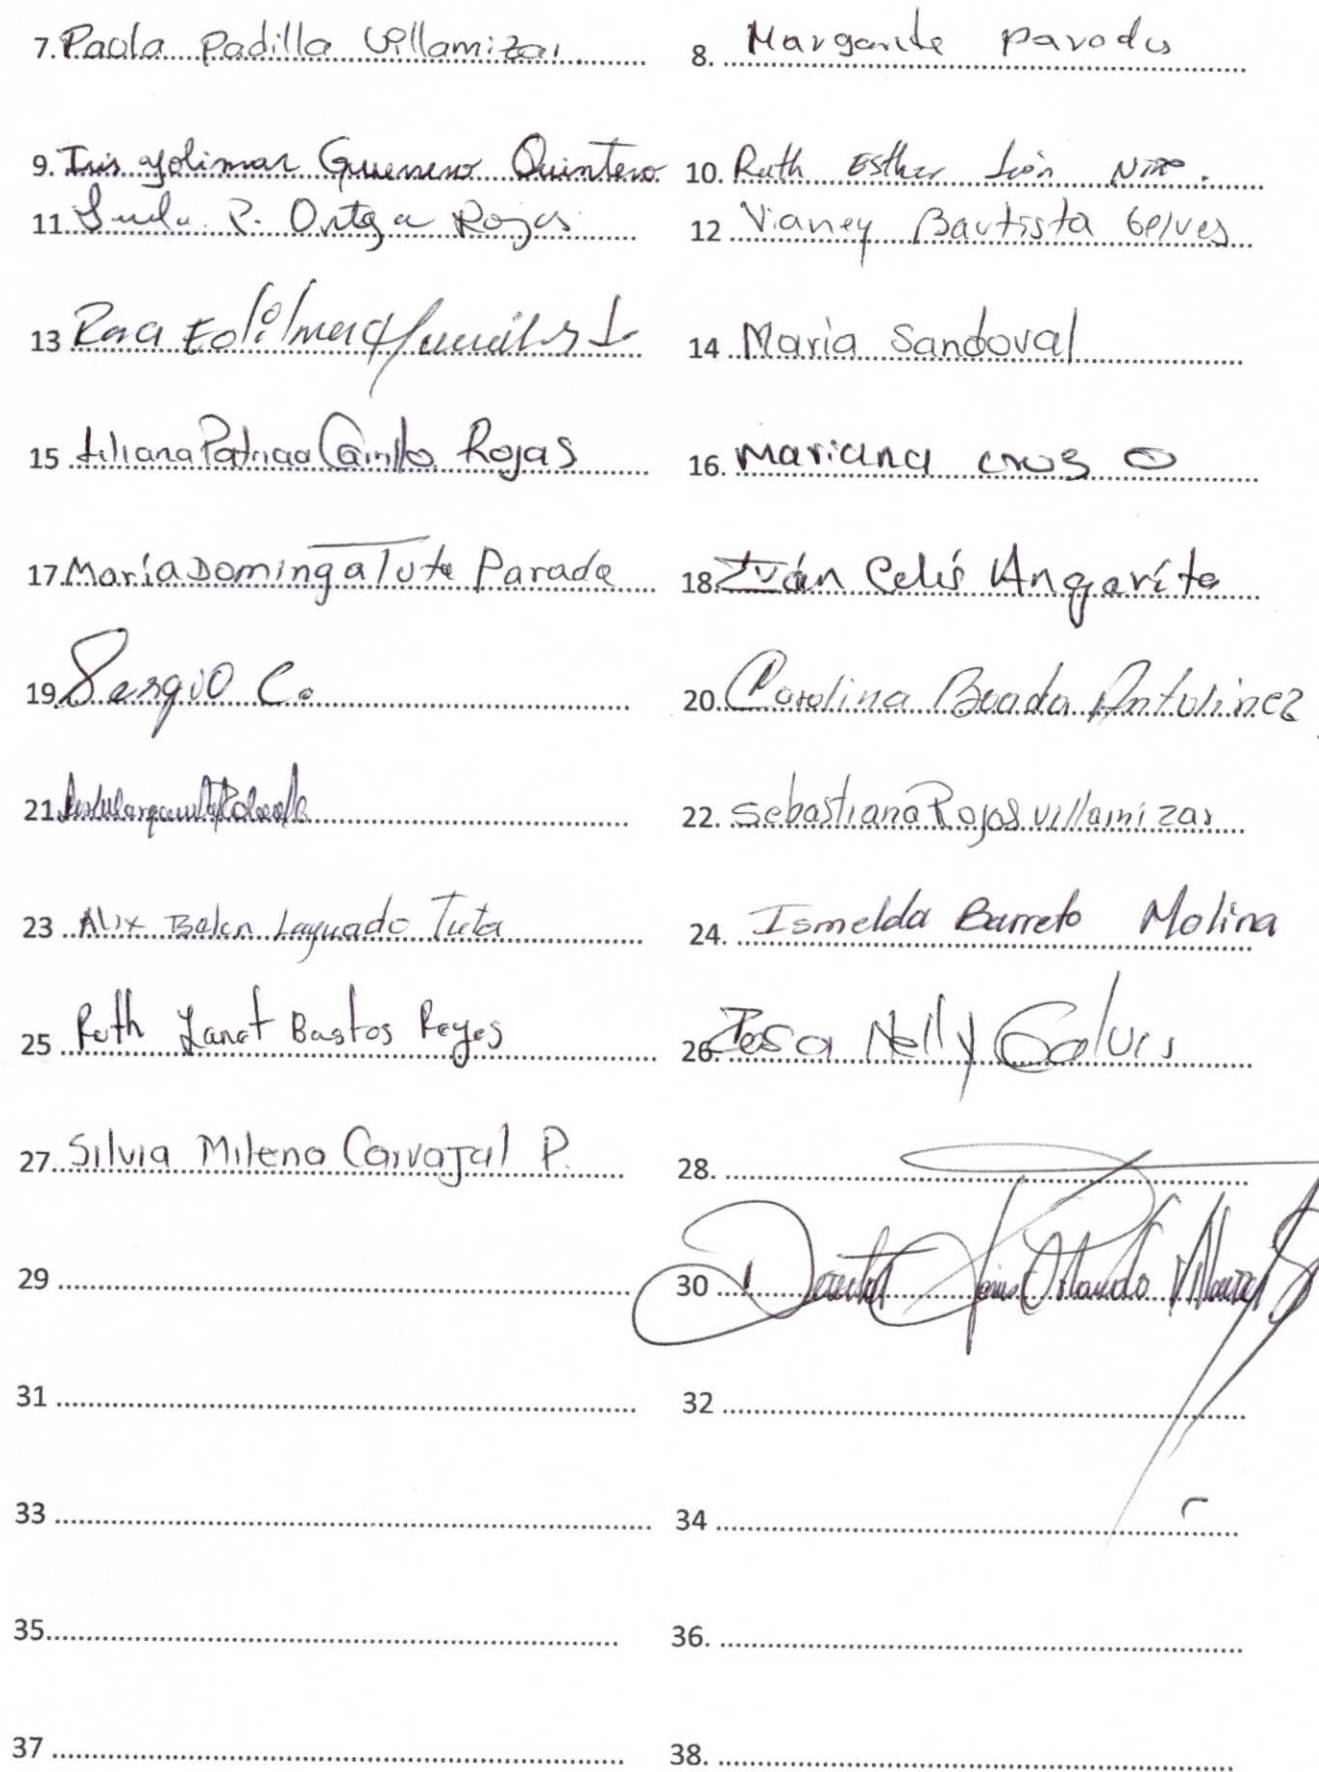 7. Paola Padilla Villamizar 8. Margarita Parada
9. Iris Yolimar Guerrero Quintero 10. Ruth Esther León Niño.
11 P. Ortega Rojas 12 Vianey Bautista Gelves
13 14 María Sandoval
15 Liliana Patricia Carrillo Rojas 16. Mariana Cruz O
17. María Dominga Tuta Parada 18. Iván Celis Angarita
19 Sergio C. 20. Carolina Boada Antolinez
21. 22. Sebastiana Rojas Villamizar
23 Alix Belen Laguado Tuta 24. Ismelda Barreto Molina
25 Ruth Yanet Bastos Reyes 26 Rosa Nelly Galvis
27. Silvia Milena Carvajal P. 28.
29 30 Orlando
31 32
33 34
35 36.
37 38.